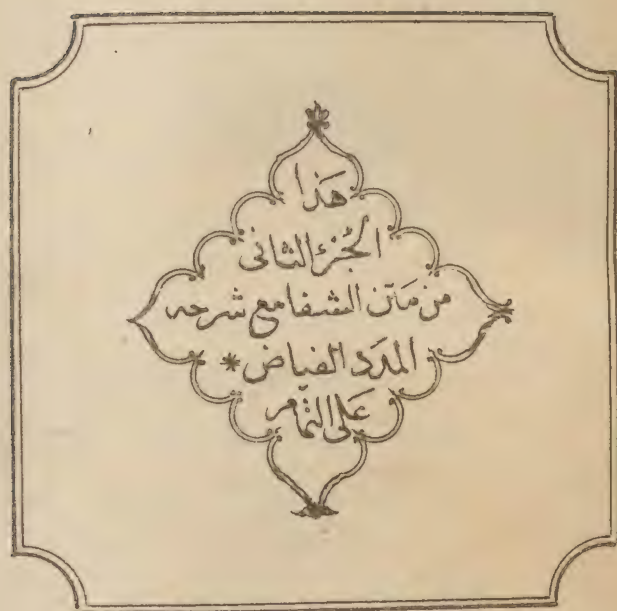 هَذا
الجُزء الثانى
من مَتن الشفا مع شرحه
المدَد الفياض *
عَلى التمام